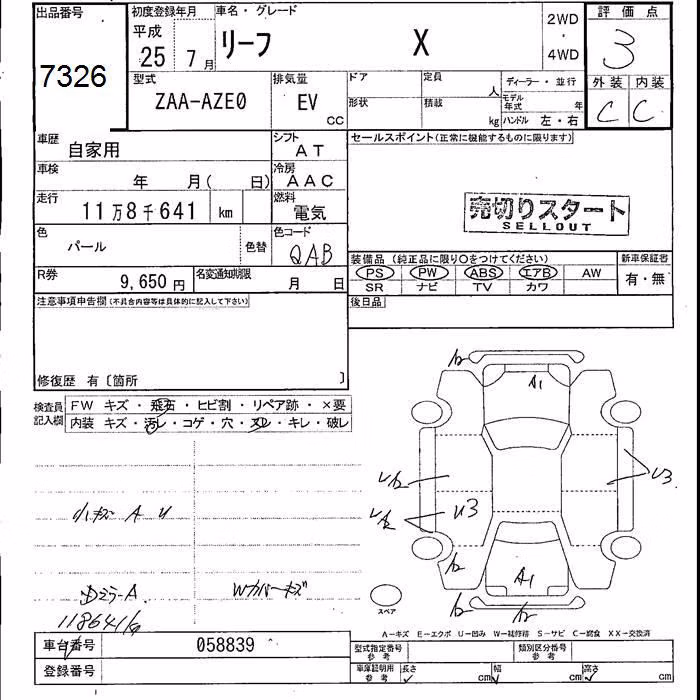 出品番号
7326
初度登録年月
平成
25 7月
車名・グレード
リーフ X
2WD
・
4WD
評価点
3
外装 内装
C C
型式
ZAA-AZE0
排気量
EV
CC
ドア
形状
定員
人
積載
kg
ディーラー・並行
モデル年式 年
ハンドル 左・右
車歴
自家用
シフト
AT
車検
年 月( 日)
冷房
AAC
走行
11万8千641 km
燃料
電気
色
パール
色替
色コード
QAB
R券
9,650円
名変通知期限
月 日
セールスポイント(正常に機能するものに限ります)
売切りスタート
SELLOUT
装備品 (純正品に限り○をつけてください)
PS PW ABS エアB AW
SR ナビ TV カワ
新車保証書
有・無
後日品
注意事項申告欄(不具合内容等は具体的に記入して下さい)
修復歴 有〔箇所 〕
検査員記入欄
FW キズ・飛石・ヒビ割・リペア跡・×要
内装 キズ・汚レ・コゲ・穴・ヌレ・キレ・破レ
小キズ A U
Wカバーキズ
118641k
A1
U3
U3
A1
スペア
A―キズ E―エクボ U―凹み W―補修跡 S―サビ C―腐食 XX―交換済
車台番号
058839
登録番号
型式指定番号
参考
類別区分番号
参考
車庫証明用
参考
長さ cm
幅 cm
高さ cm